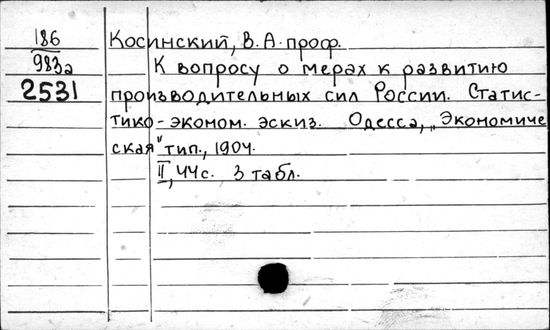 186 Косинский, В. А. проф.
983а К вопросу о мерах к развитию
2531 производительных сил России. Статис-
тико-эконом. эскиз. Одесса, „Экономиче
ская" тип., 1904.
II, 44 с. 3 табл.